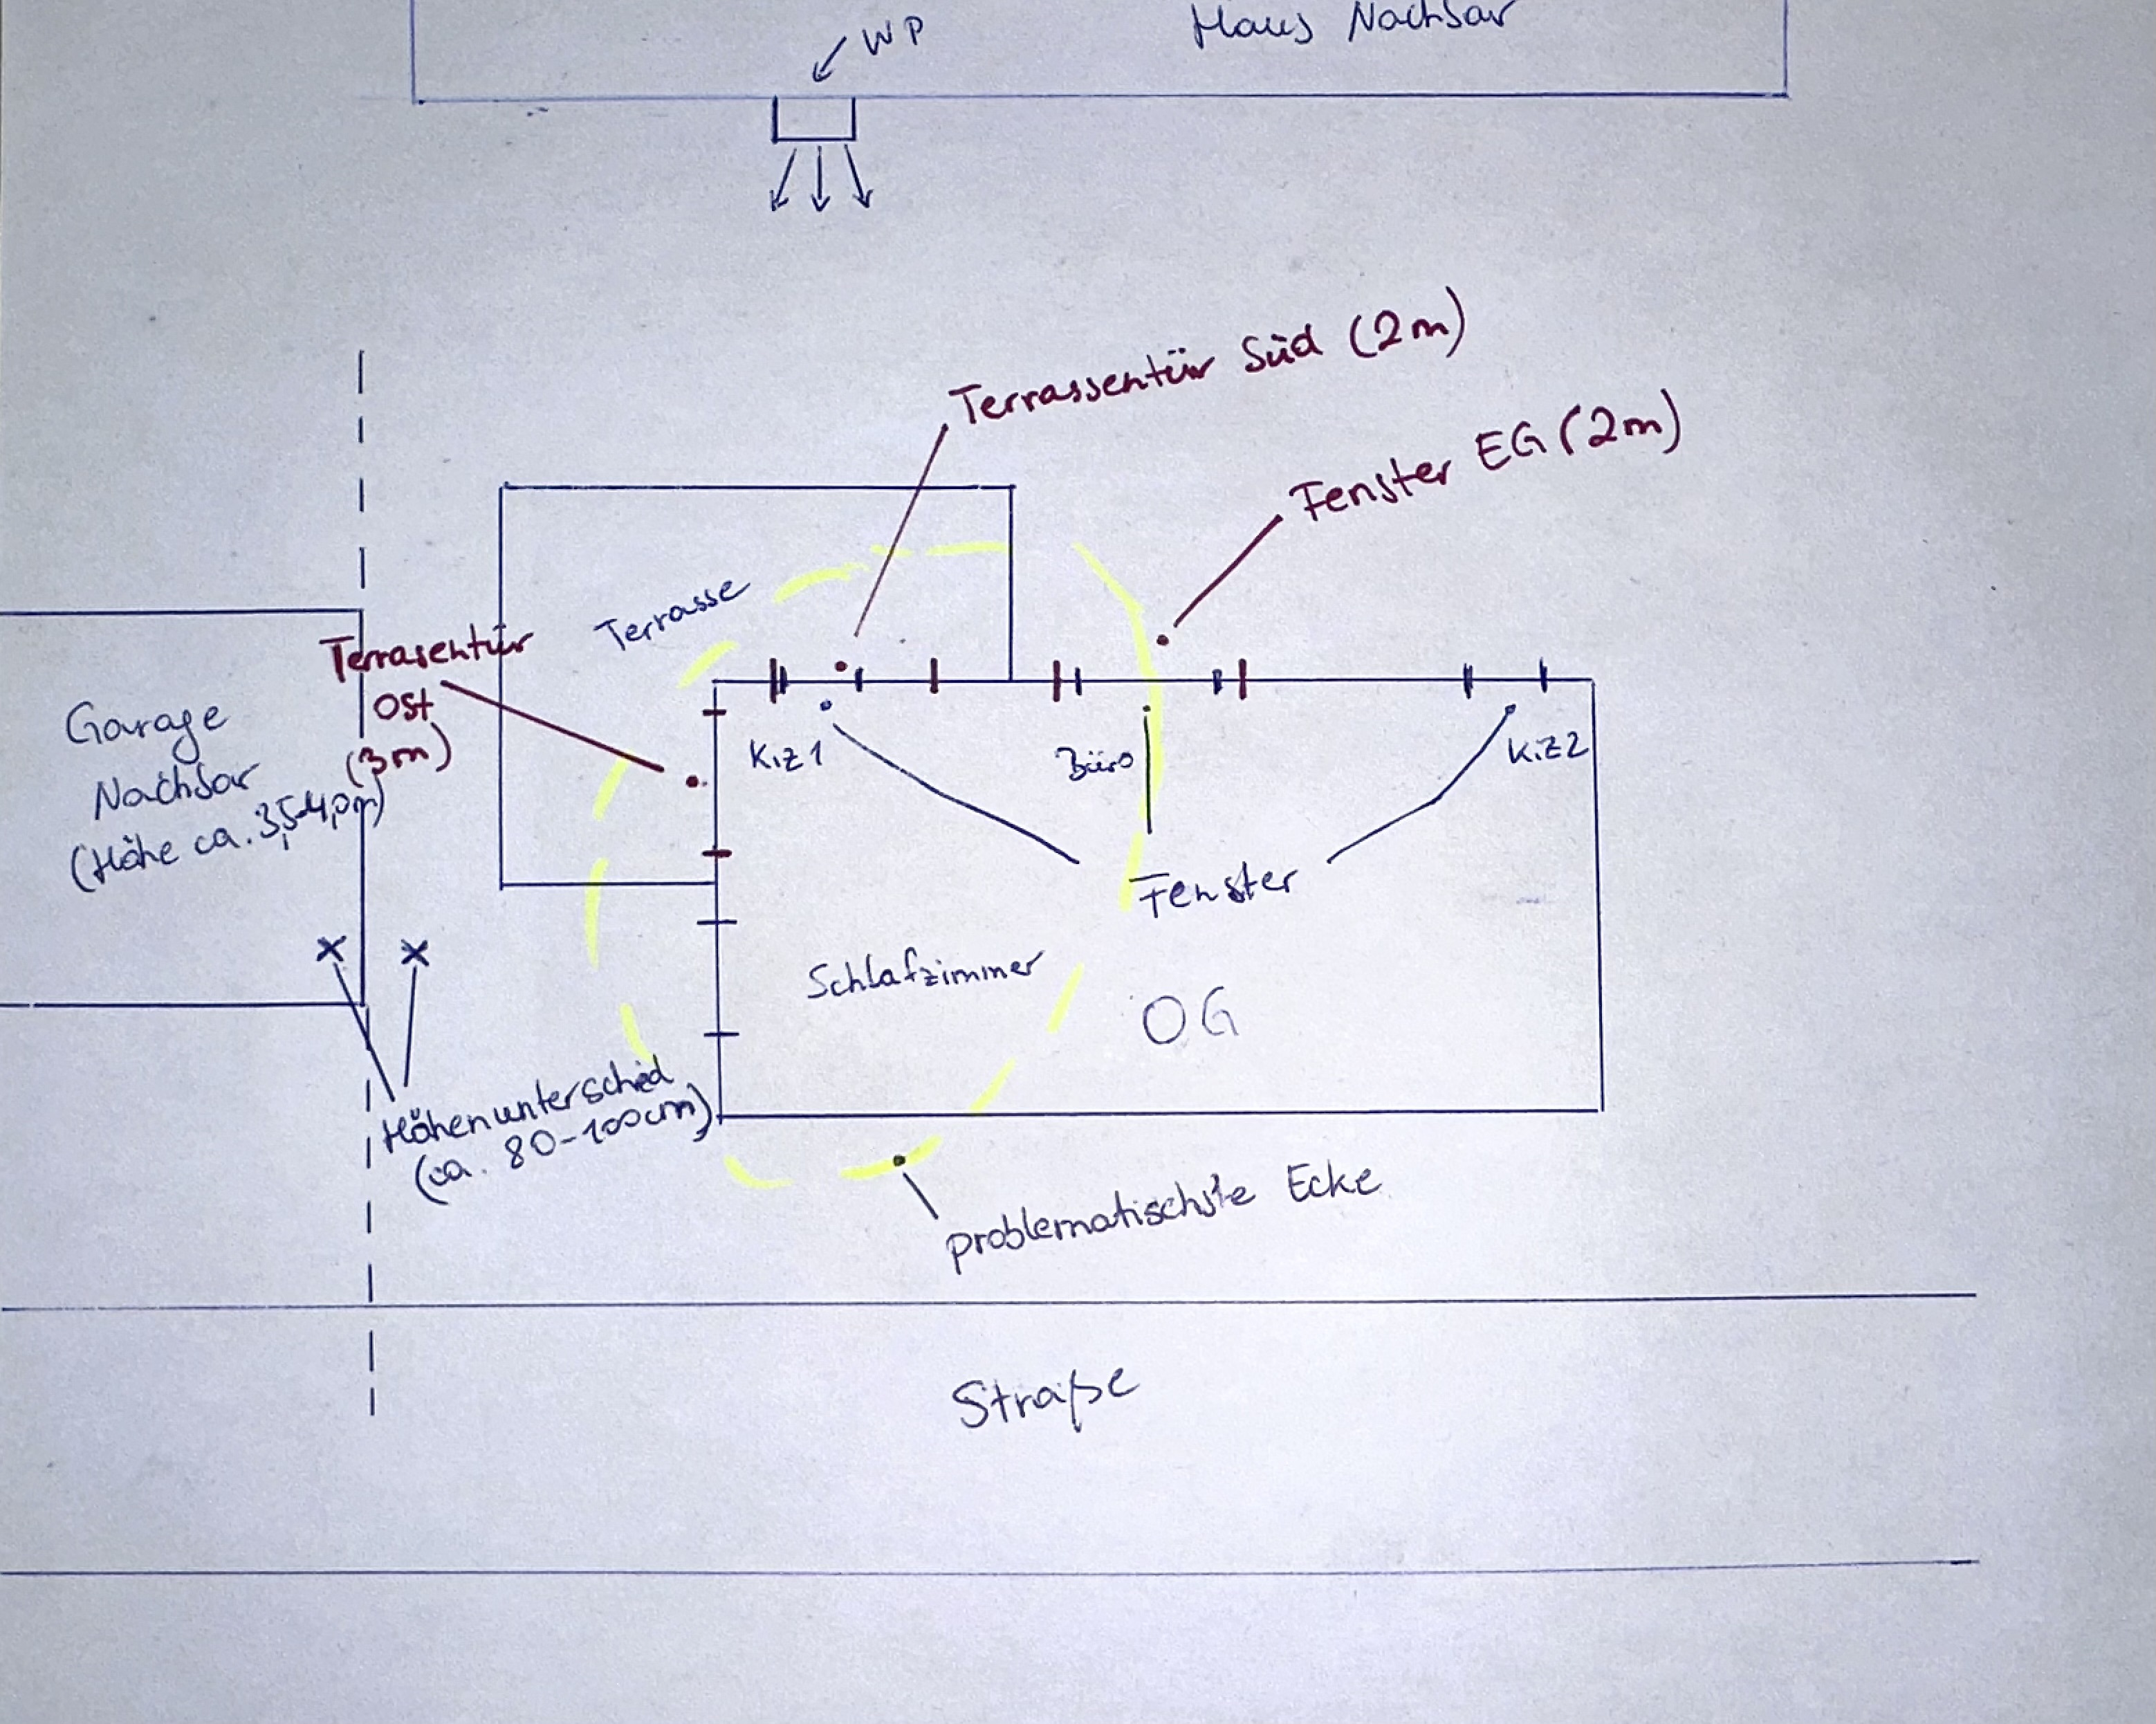 WP
Haus Nachbar
Terrassentür Süd (2m)
Fenster EG (2m)
Terrasse
Terrasentür
Ost
(3m)
Garage
Nachbar
(Höhe ca. 3,5-4,0m)
Kiz1
Büro
Kiz2
Fenster
Schlafzimmer
OG
Höhenunterschied
(ca. 80-100cm)
problematischste Ecke
Straße